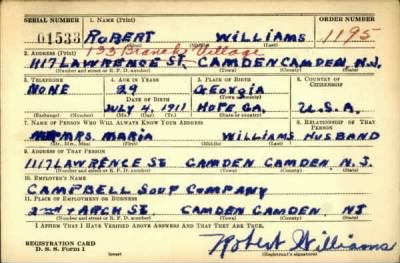 SERIAL NUMBER 1. NAME (Print)
01533 ROBERT WILLIAMS 1195
133 Branch Village
2. ADDRESS (Print)
1117 LAWRENCE ST. CAMDEN CAMDEN N.J.
(Number and street or R. F. D. number) (Town) (County) (State)
3. TELEPHONE 4. AGE IN YEARS 5. PLACE OF BIRTH 6. COUNTRY OF CITIZENSHIP
NONE 29 GEORGIA
DATE OF BIRTH
JULY 4, 1911 HOPE, GA. U.S.A.
(Exchange) (Number) (Mo.) (Day) (Yr.) (Town or county) (State or country)
7. NAME OF PERSON WHO WILL ALWAYS KNOW YOUR ADDRESS 8. RELATIONSHIP OF THAT PERSON
MRS. MARIA WILLIAMS HUSBAND
(Mr., Mrs., Miss) (First) (Middle) (Last)
9. ADDRESS OF THAT PERSON
1117 LAWRENCE ST CAMDEN CAMDEN N.J.
(Number and street or R. F. D. number) (Town) (County) (State)
10. EMPLOYER'S NAME
CAMPBELL SOUP COMPANY
11. PLACE OF EMPLOYMENT OR BUSINESS
2nd + ARCH ST. CAMDEN CAMDEN NJ
(Number and street or R. F. D. number) (Town) (County) (State)
I AFFIRM THAT I HAVE VERIFIED ABOVE ANSWERS AND THAT THEY ARE TRUE.
REGISTRATION CARD
D. S. S. Form 1
Robert Williams
(Registrant's signature)